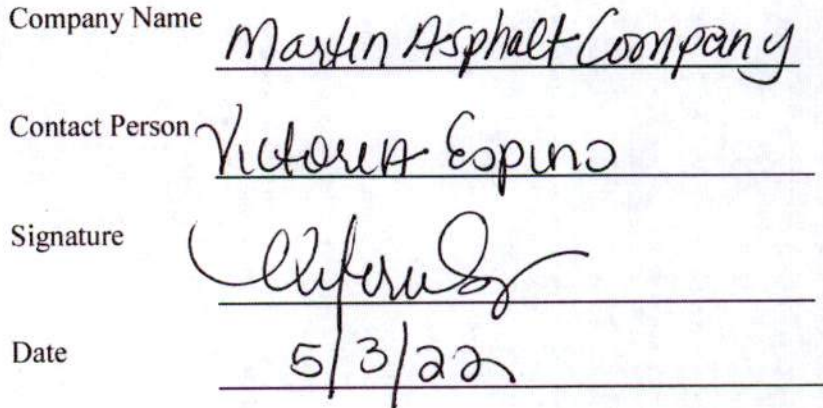 Company Name Martin Asphalt Company
Contact Person Victoria Espino
Signature
Date 5/3/22